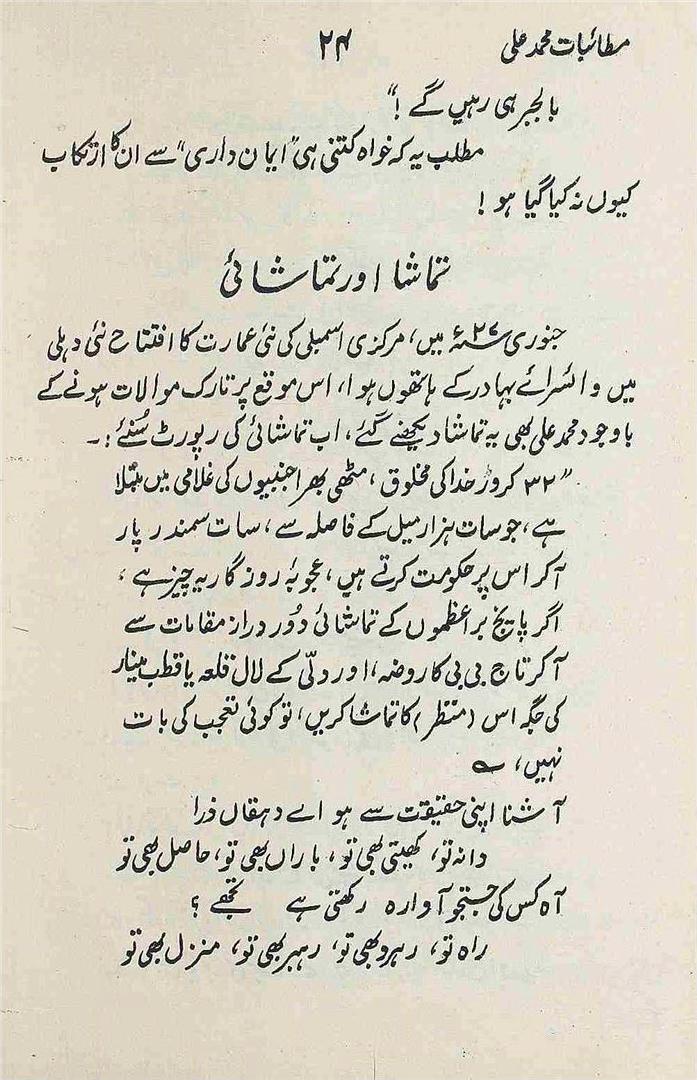 مطائبات محمد علی ۲۴
بالجبر ہی رہیں گے !"
مطلب یہ کہ خواہ کتنی ہی "ایمان داری" سے ان کا ارتکاب
کیوں نہ کیا گیا ہو !
تماشا اور تماشائی
جنوری ۲۷ء میں، مرکزی اسمبلی کی نئی عمارت کا افتتاح نئی دہلی
میں وائسرائے بہادر کے ہاتھوں ہوا، اس موقع پر تارک موالات ہونے کے
باوجود محمد علی بھی یہ تماشا دیکھنے گئے، اب تماشائی کی رپورٹ سُنئے:۔
"۳۲ کروڑ خدا کی مخلوق، مٹھی بھر اجنبیوں کی غلامی میں مبتلا
ہے، جو سات ہزار میل کے فاصلہ سے، سات سمندر پار
آکر اس پر حکومت کرتے ہیں، عجوبۂ روزگار یہ چیز ہے،
اگر پانچ براعظموں کے تماشائی دُور دراز مقامات سے
آکر تاج بی بی کا روضہ، اور دلّی کے لال قلعہ یا قطب مینار
کی جگہ اس (منتظر) کا تماشا کریں، تو کوئی تعجب کی بات
نہیں، ؎
آشنا اپنی حقیقت سے ہو اے دہقاں ذرا
دانہ تو، کھیتی بھی تو، باراں بھی تو، حاصل بھی تو
آہ کس کی جستجو آوارہ رکھتی ہے تجھے ؟
راہ تو، رہرو بھی تو، رہبر بھی تو، منزل بھی تو